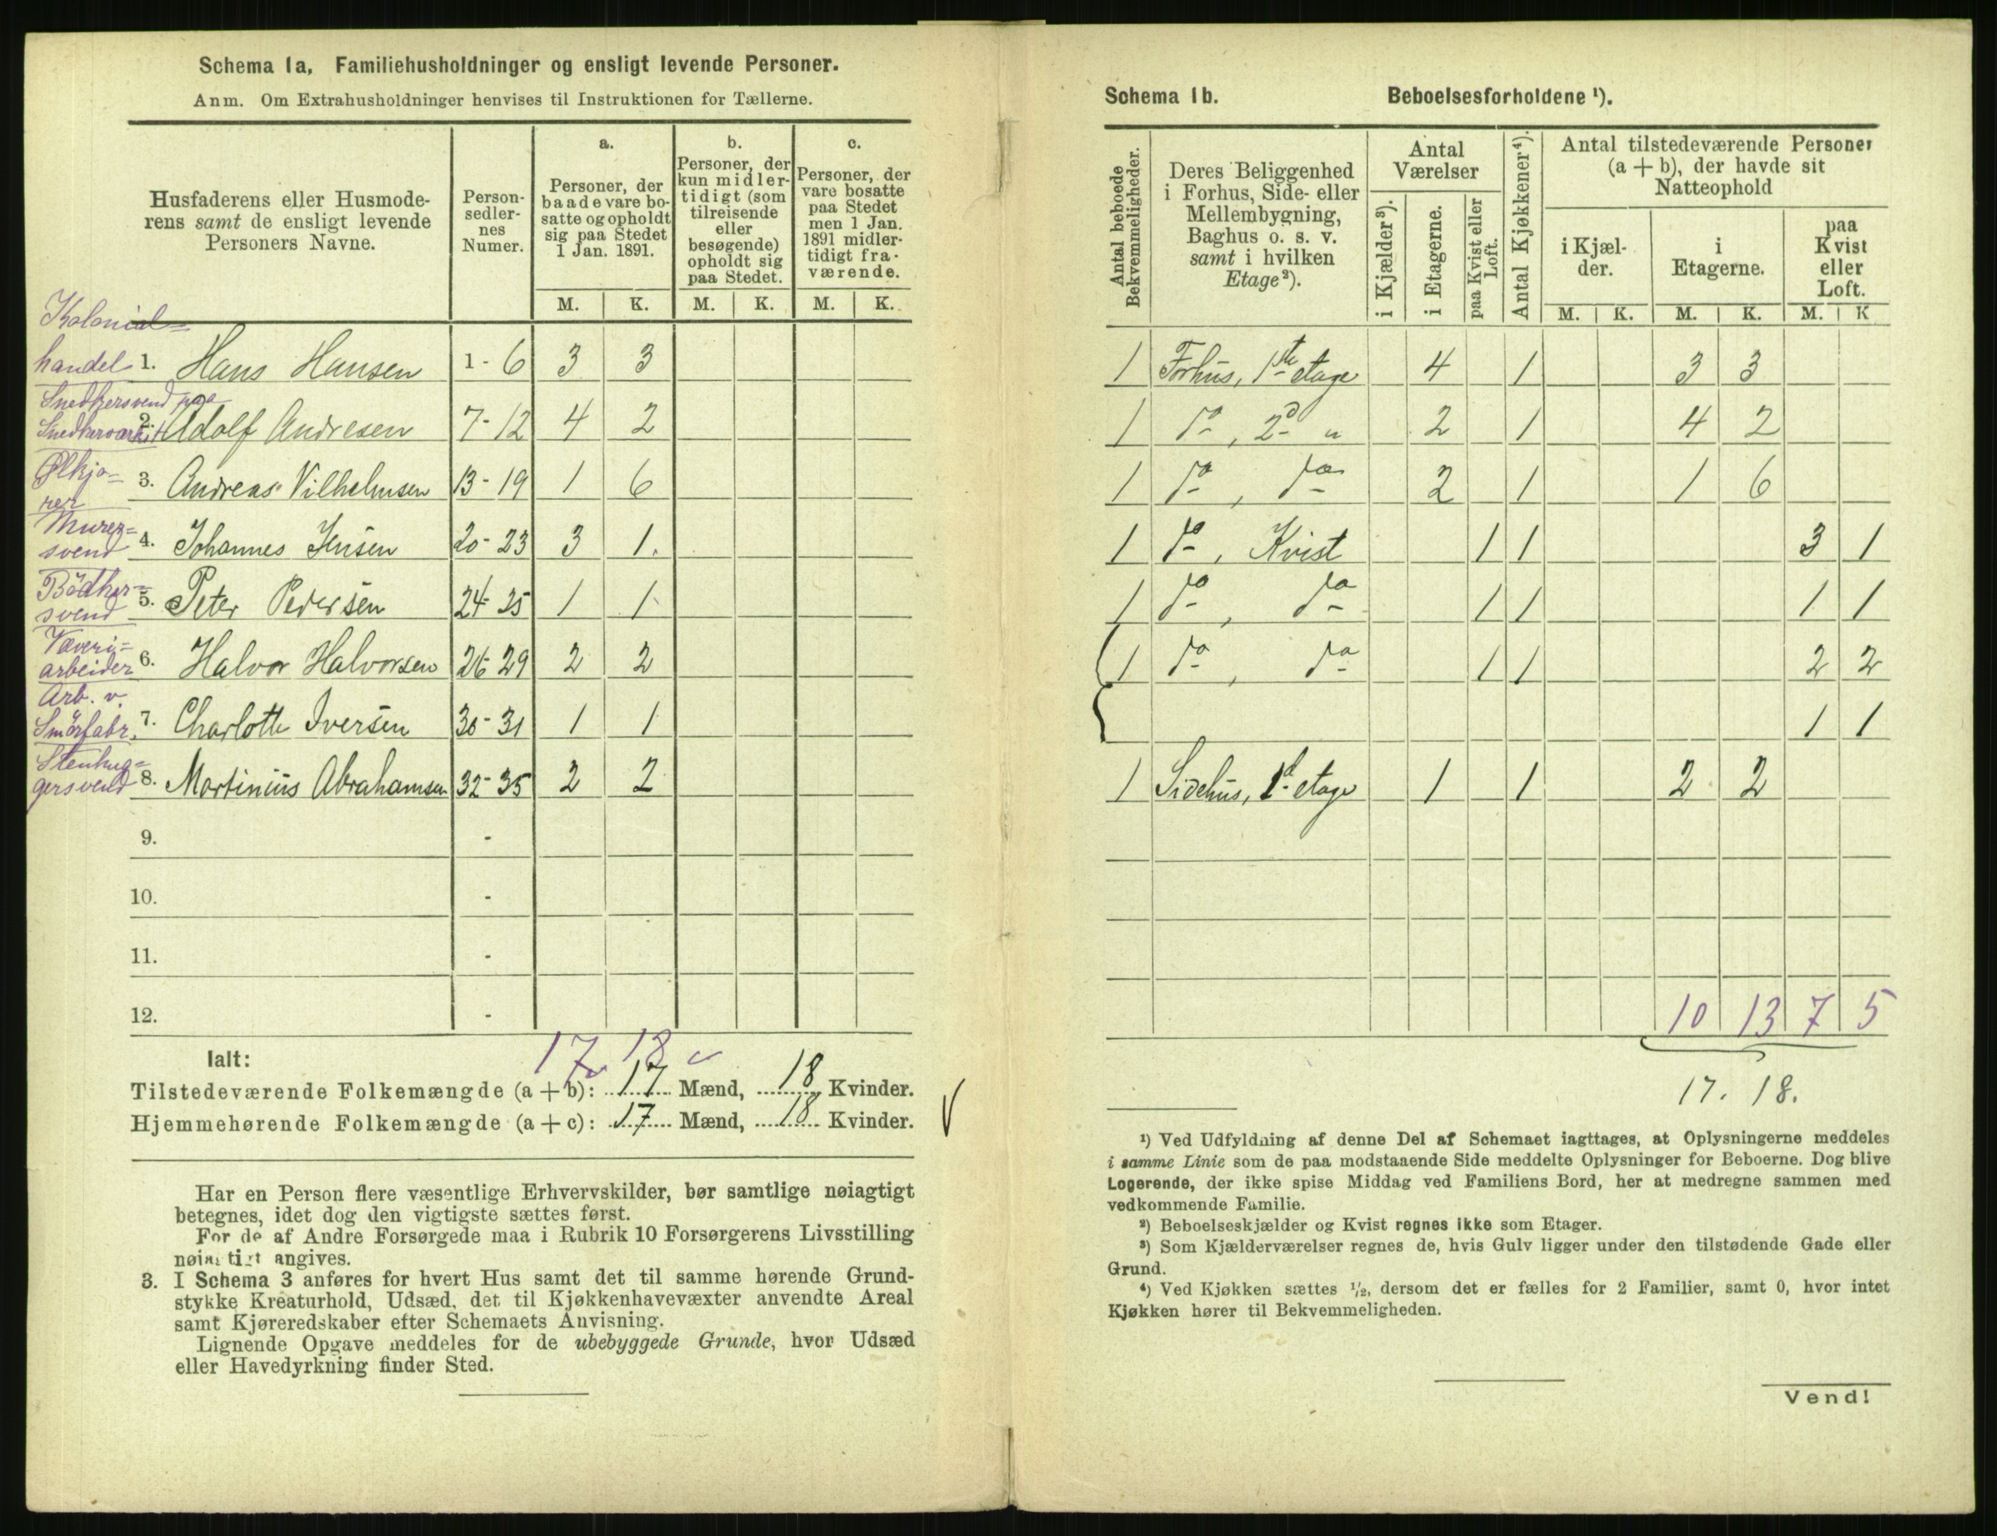 Schema 1a, Familiehusholdninger og ensligt levende Personer.
Anm. Om Extrahusholdninger henvises til Instruktionen for Tællerne.
Husfaderens eller Husmoderens samt de ensligt levende Personers Navne. | Personsedlernes Numer. | a. Personer, der baade vare bosatte og opholdt sig paa Stedet 1 Jan. 1891. | b. Personer, der kun midlertidigt (som tilreisende eller besøgende) opholdt sig paa Stedet. | c. Personer, der vare bosatte paa Stedet men 1 Jan. 1891 midlertidigt fraværende.
M. K. M. K. M. K.
Kolonial=
handel 1. Hans Hansen 1 - 6 3 3
Snedkersvend paa
Snedkerværkst 2. Adolf Andresen 7 - 12 4 2
Ølkjø=
rer 3. Andreas Vilhelmsen 13 - 19 1 6
Murer=
svend 4. Johannes Jensen 20 - 23 3 1.
Bødker=
svend 5. Peter Pedersen 24 - 25 1 1
Væveri=
arbeider 6. Halvor Halvorsen 26 - 29 2 2
Arb. v.
Smørfabr. 7. Charlotte Iversen 30 - 31 1 1
Stenhug=
gersvend 8. Martinius Abrahamsen 32 - 35 2 2
9. -
10. -
11. -
12. -
17 18
Ialt:
Tilstedeværende Folkemængde (a + b): 17 Mænd, 18 Kvinder.
Hjemmehørende Folkemængde (a + c): 17 Mænd, 18 Kvinder.
Har en Person flere væsentlige Erhvervskilder, bør samtlige nøiagtigt
betegnes, idet dog den vigtigste sættes først.
For de af Andre Forsørgede maa i Rubrik 10 Forsørgerens Livsstilling
nøiagtigt angives.
3. I Schema 3 anføres for hvert Hus samt det til samme hørende Grund-
stykke Kreaturhold, Udsæd, det til Kjøkkenhavevæxter anvendte Areal
samt Kjøreredskaber efter Schemaets Anvisning.
Lignende Opgave meddeles for de ubebyggede Grunde, hvor Udsæd
eller Havedyrkning finder Sted.
Schema 1b. Beboelsesforholdene ¹).
Antal beboede Bekvemmeligheder. | Deres Beliggenhed i Forhus, Side- eller Mellembygning, Baghus o. s. v. samt i hvilken Etage²). | Antal Værelser | i Kjælder³). | i Etagerne. | paa Kvist eller Loft. | Antal Kjøkkener⁴). | Antal tilstedeværende Personer (a + b), der havde sit Natteophold | i Kjælder. | i Etagerne. | paa Kvist eller Loft.
M. K. M. K. M. K
1 Forhus, 1ste etage 4 1 3 3
1 do, 2d " 2 1 4 2
1 do, do 2 1 1 6
1 do, Kvist 1 1 3 1
1 do, do 1 1 1 1
1 do, do 1 1 2 2
1 1
1 Sidehus, 1st etage 1 1 2 2
10 13 7 5
17. 18.
¹) Ved Udfyldning af denne Del af Schemaet iagttages, at Oplysningerne meddeles
i samme Linie som de paa modstaaende Side meddelte Oplysninger for Beboerne. Dog blive
Logerende, der ikke spise Middag ved Familiens Bord, her at medregne sammen med
vedkommende Familie.
²) Beboelseskjælder og Kvist regnes ikke som Etager.
³) Som Kjælderværelser regnes de, hvis Gulv ligger under den tilstødende Gade eller
Grund.
⁴) Ved Kjøkken sættes ½, dersom det er fælles for 2 Familier, samt 0, hvor intet
Kjøkken hører til Bekvemmeligheden.
Vend!